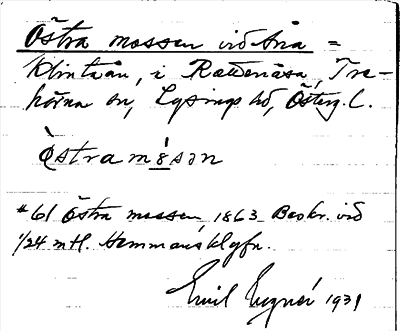 Östra mossen vid Åna =
Klintaån, i Raddenäsa, Tre-
hörna sn, Lysings hd, Österg. l.
Östramósən
#61 Östra mossen 1863 Beskr. vid
1/24 mtl. Hemmansklyfn.
Emil 1931